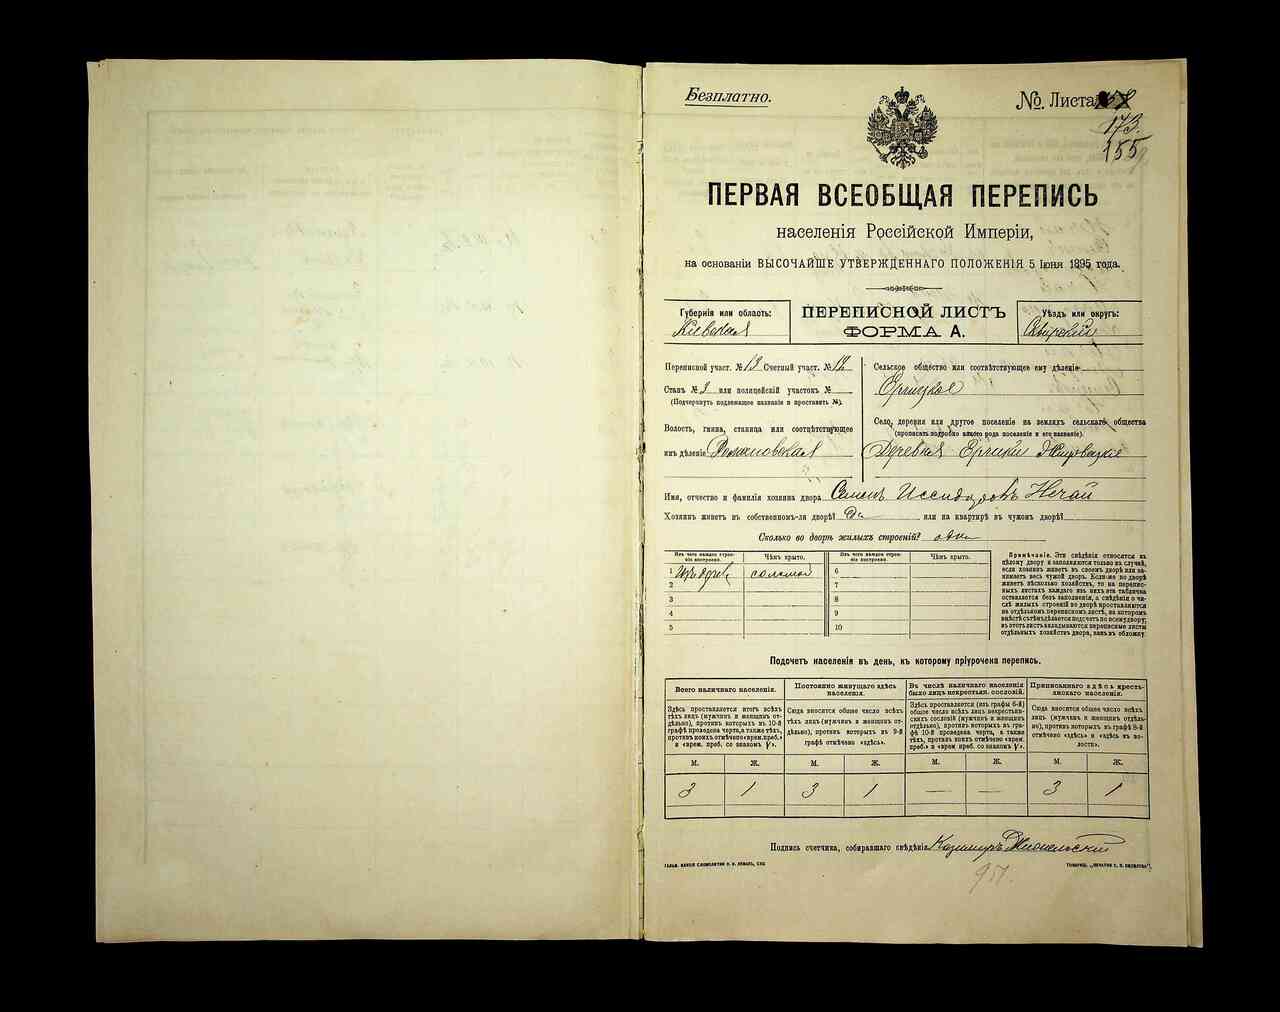 Безплатно.
№. Листа
173.
155
ПЕРВАЯ ВСЕОБЩАЯ ПЕРЕПИСЬ
населенія Россійской Имперіи,
на основаніи ВЫСОЧАЙШЕ УТВЕРЖДЕННАГО ПОЛОЖЕНІЯ 5 Іюня 1895 года.
Губернія или область:
Кіевская
ПЕРЕПИСНОЙ ЛИСТЪ
ФОРМА А.
Уѣздъ или округъ:
Сквирскій
Переписной участ. № 13 Счетный участ. № 12
Станъ № 3 или полицейскій участокъ №
(Подчеркнуть подлежащее названіе и проставить №).
Волость, гмина, станица или соотвѣтствующее
имъ дѣленіе Романовская
Сельское общество или соотвѣтствующее ему дѣленіе
Ерчицкое
Село, деревня или другое поселеніе на земляхъ сельскаго общества
(прописать подробно какого рода поселеніе и его названіе).
Деревня Ерчики
Имя, отчество и фамилія хозяина двора Семенъ Иссидоровъ Нечай
Хозяинъ живетъ въ собственномъ-ли дворѣ? Да или на квартирѣ въ чужомъ дворѣ?
Сколько во дворѣ жилыхъ строеній? одно
Изъ чего каждое строеніе построено. Чѣмъ крыто. Изъ чего каждое строеніе построено. Чѣмъ крыто.
1 Изъ дерев соломой 6
2 7
3 8
4 9
5 10
Примѣчаніе. Эти свѣдѣнія относятся къ
цѣлому двору и заполняются только въ случаѣ,
если хозяинъ живетъ въ своемъ дворѣ или занимаетъ
весь чужой дворъ. Если-же во дворѣ
живетъ нѣсколько хозяйствъ, то на переписныхъ
листахъ каждаго изъ нихъ эта табличка
оставляется безъ заполненія, а свѣдѣнія о числѣ
жилыхъ строеній во дворѣ проставляются
на отдѣльномъ переписномъ листѣ, на которомъ
вмѣстѣ съ тѣмъ дѣлается подсчетъ по всему двору;
въ этотъ листъ вкладываются переписные листы
отдѣльныхъ хозяйствъ двора, какъ въ обложку.
Подсчетъ населенія въ день, къ которому пріурочена перепись.
Всего наличнаго населенія.
Здѣсь проставляется итогъ всѣхъ
тѣхъ лицъ (мужчинъ и женщинъ отдѣльно),
противъ которыхъ въ 10-й
графѣ проведена черта, а также тѣхъ,
противъ коихъ отмѣчено «врем. преб.»
и «врем. преб. со знакомъ V».
Постоянно живущаго здѣсь населенія.
Сюда вносится общее число всѣхъ
тѣхъ лицъ (мужчинъ и женщинъ отдѣльно),
противъ которыхъ въ 9-й
графѣ отмѣчено «здѣсь».
Въ числѣ наличнаго населенія
было лицъ некрестьян. сословій.
Здѣсь проставляется (изъ графы 6-й)
общее число всѣхъ лицъ некрестьянскихъ
сословій (мужчинъ и женщинъ
отдѣльно), противъ которыхъ въ графѣ
10-й проведена черта, а также
тѣхъ, противъ коихъ отмѣчено «врем.
преб.» и «врем преб. со знакомъ V».
Приписаннаго здѣсь крестьянскаго населенія.
Сюда вносится общее число всѣхъ
лицъ (мужчинъ и женщинъ отдѣльно),
противъ которыхъ въ графѣ 8-й
отмѣчено «здѣсь» и «здѣсь въ волости».
М. Ж. М. Ж. М. Ж. М. Ж.
3 1 3 1 — — 3 1
Подпись счетчика, собиравшаго свѣдѣнія Казимиръ
951.